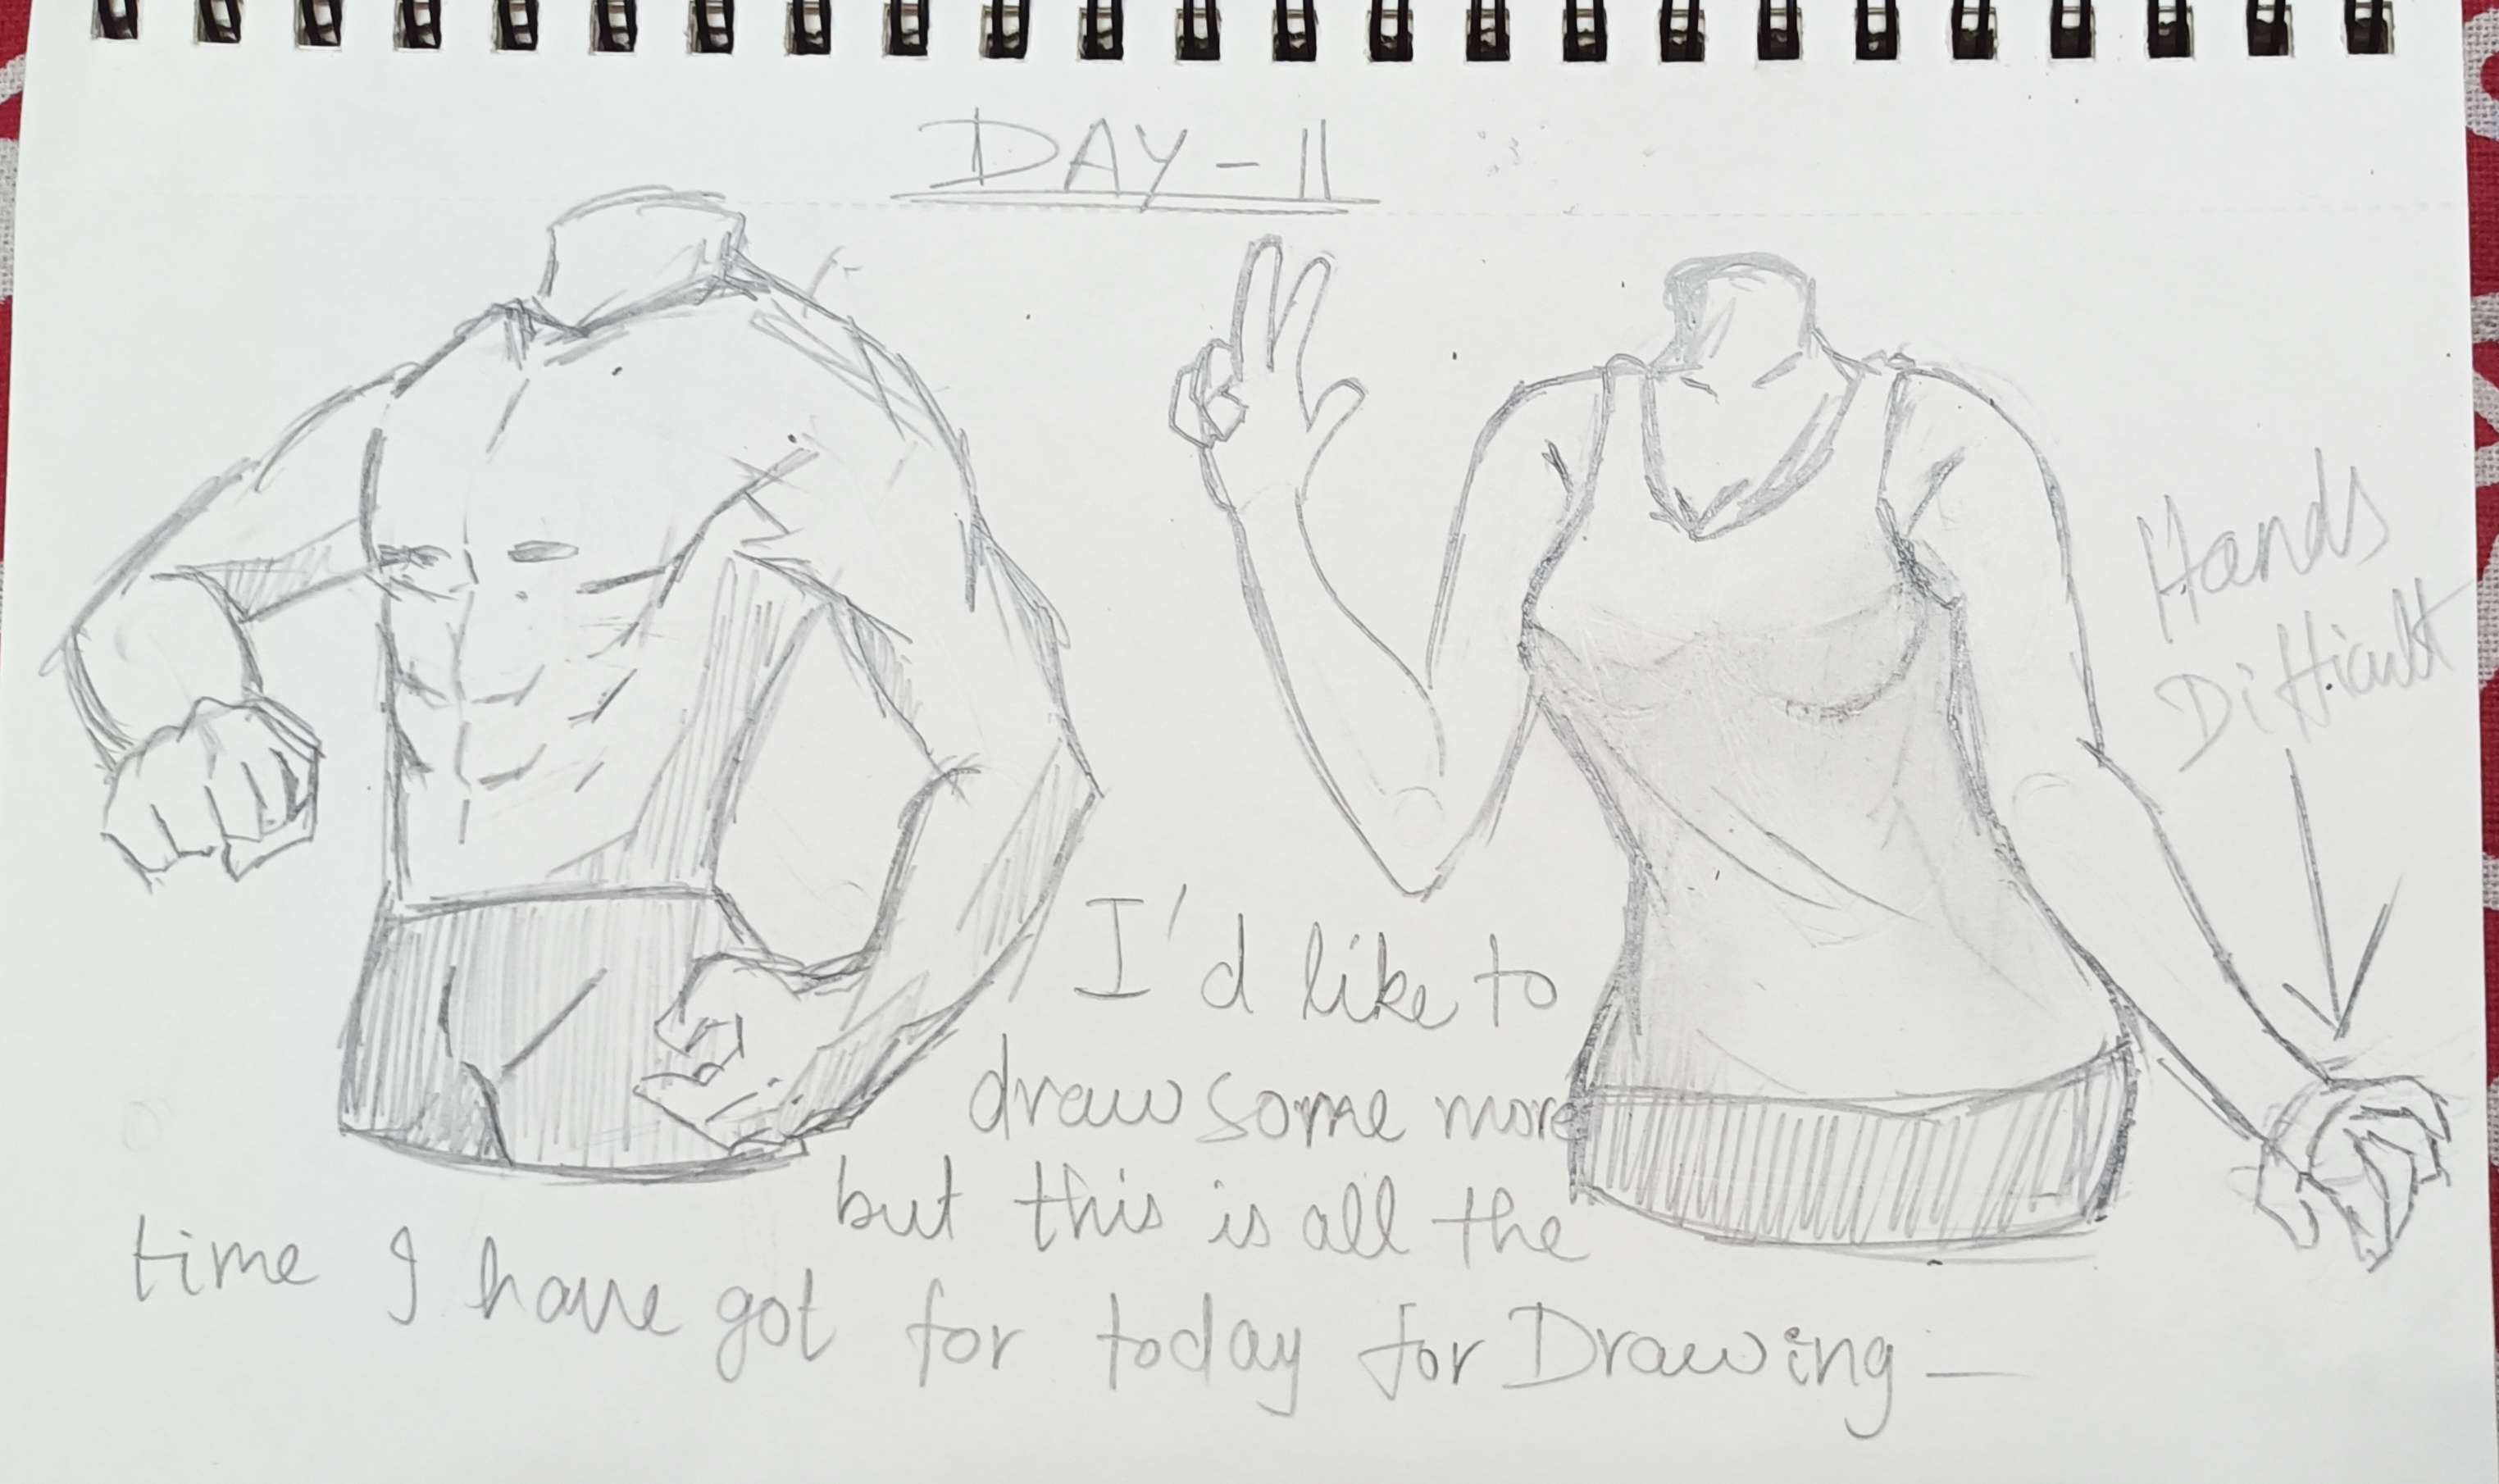 DAY - 11
Hands
Difficult
I'd like to
draw some more
but this is all the
time I have got for today for Drawing —